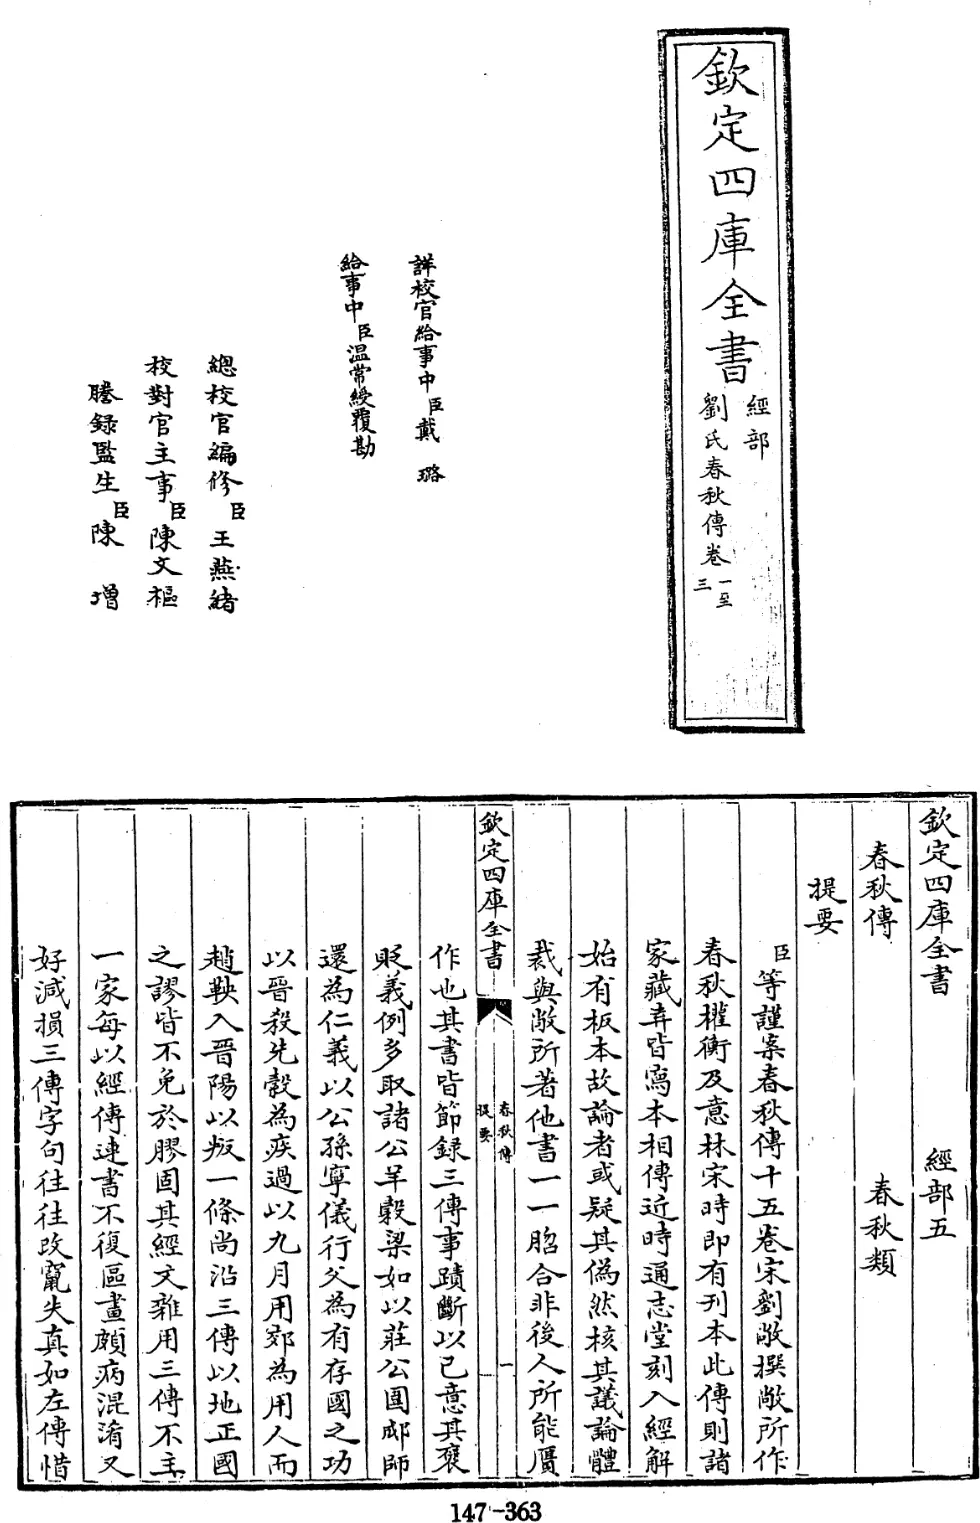 欽定四庫全書
經部
劉氏春秋傳卷一至三
詳校官給事中臣戴璐
給事中臣温常綬覆勘
總校官編修臣王燕緒
校對官主事臣陳文樞
謄錄監生臣陳增
欽定四庫全書 經部五
春秋傳 春秋類
提要
臣等謹案春秋傳十五卷宋劉敞撰敞所作
春秋權衡及意林宋時即有刊本此傳則諸
家藏弆皆寫本相傳近時通志堂刻入經解
始有板本故論者或疑其偽然核其議論體
裁與敞所著他書一一脗合非後人所能贋
欽定四庫全書
春秋傳
提要
一
作也其書皆節錄三傳事蹟斷以己意其褒
貶義例多取諸公羊穀梁如以莊公圍郕師
還為仁義以公孫寧儀行父為有存國之功
以晉殺先縠為疾過以九月用郊為用人而
趙鞅入晉陽以叛一條尚沿三傳以地正國
之謬皆不免於膠固其經文雜用三傳不主
一家每以經傳連書不復區畫頗病混淆又
好減損三傳字句往往改竄失真如左傳惜
147-363